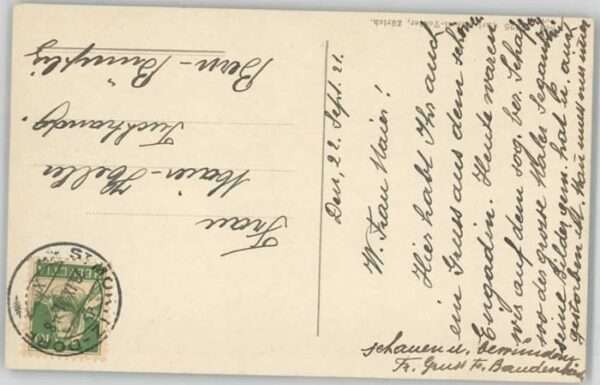 Den, 22. Sept. 21.
W. Frau Maier!
Hier habt Ihr auch
ein Gruss aus dem schönen
Engadin. Heute waren
wir auf dem sog. bes. Schafberg
wo der grosse Maler Segantini
seine Bilder gem. hat u. auch
gestorben ist. Man muss nur immer
schauen u. bewundern.
Fr. Gruss Fr.
Frau
Maier-Heller
Tuchhandg.
Bern-Bümpliz
ST. MORITZ-DORF
HELVETIA
Zürich.